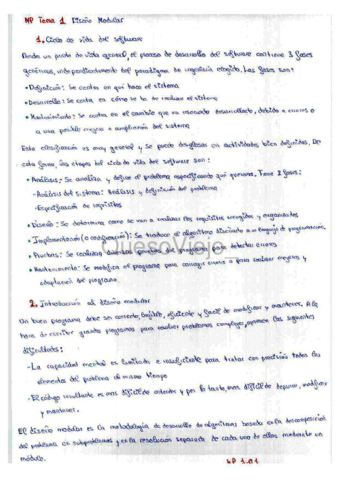 MP Tema 1 Diseño Modular
1. Ciclo de vida del software
Desde un punto de vista general, el proceso de desarrollo del software contiene 3 fases
genéricas, independientemente del paradigma de ingeniería elegido. Las fases son:
• Definición: Se centra en qué hace el sistema
• Desarrollo: Se centra en cómo se ha de realizar el sistema
• Mantenimiento: Se centra en el cambio que va asociado desarrollado, debido a errores o
a una posible mejora o ampliación del sistema
Esta clasificación es muy general y se puede desglosar en actividades bien definidas. De
esta forma, las etapas del ciclo de vida del software son:
• Análisis: Se analiza y define el problema especificando qué Tiene 2 fases:
- Análisis del sistema: Análisis y definición del problema
- Especificación de requisitos
• Diseño: Se determina cómo se van a realizar los requisitos recogidos y organizados
• Implementación (o codificación): Se traduce el algoritmo diseñado a un lenguaje de programación.
• Pruebas: Se realizan pruebas del programa para detectar errores
• Mantenimiento: Se modifica el programa para corregir errores o para realizar mejoras y
adaptaciones del programa.
QuesoViejo
2. Introducción al diseño modular
Un buen programa debe ser correcto, legible, eficiente y fácil de modificar y mantener. A la
hora de escribir grandes programas para resolver problemas complejos, aparecen las siguientes
dificultades:
- La capacidad mental es limitada e insuficiente para tratar con precisión todos los
elementos del problema al mismo tiempo
- El código resultante es más difícil de entender y por lo tanto, más difícil de depurar, modificar
y mantener.
El diseño modular es la metodología de desarrollo de algoritmos basada en la descomposición
del problema en subproblemas y en la resolución separada de cada uno de ellos mediante un
módulo.
MP 1.01